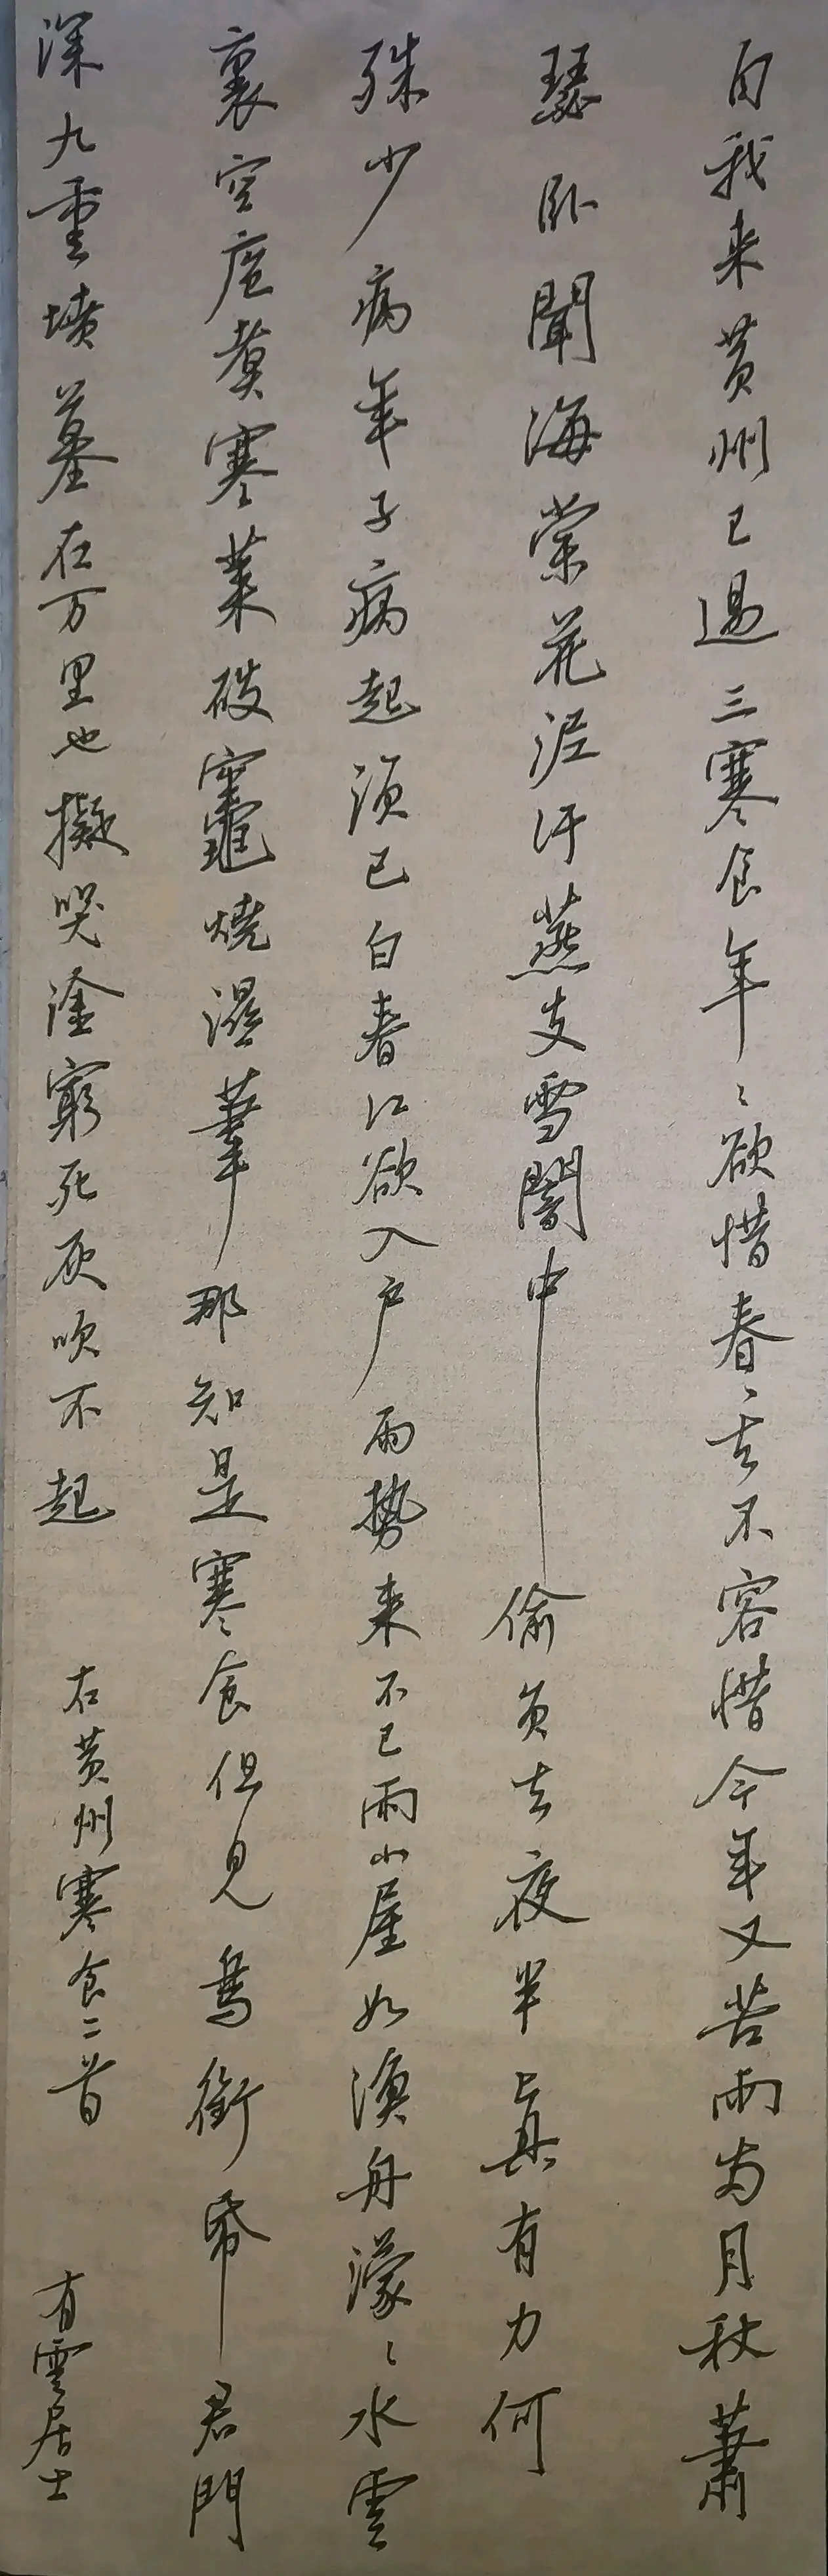 自我来黄州已過三寒食年々欲惜春々去不容惜今年又苦雨两月秋蕭
瑟卧聞海棠花泥汙燕支雪闇中偷負去夜半真有力何
殊少病年子病起須已白春江欲入户雨势来不已雨小屋如漁舟濛々水雲
裏空庖煑寒菜破竈燒濕葦那知是寒食但見烏銜帋君門
深九重墳墓在万里也擬哭塗窮死灰吹不起
右黄州寒食二首
有雲居士